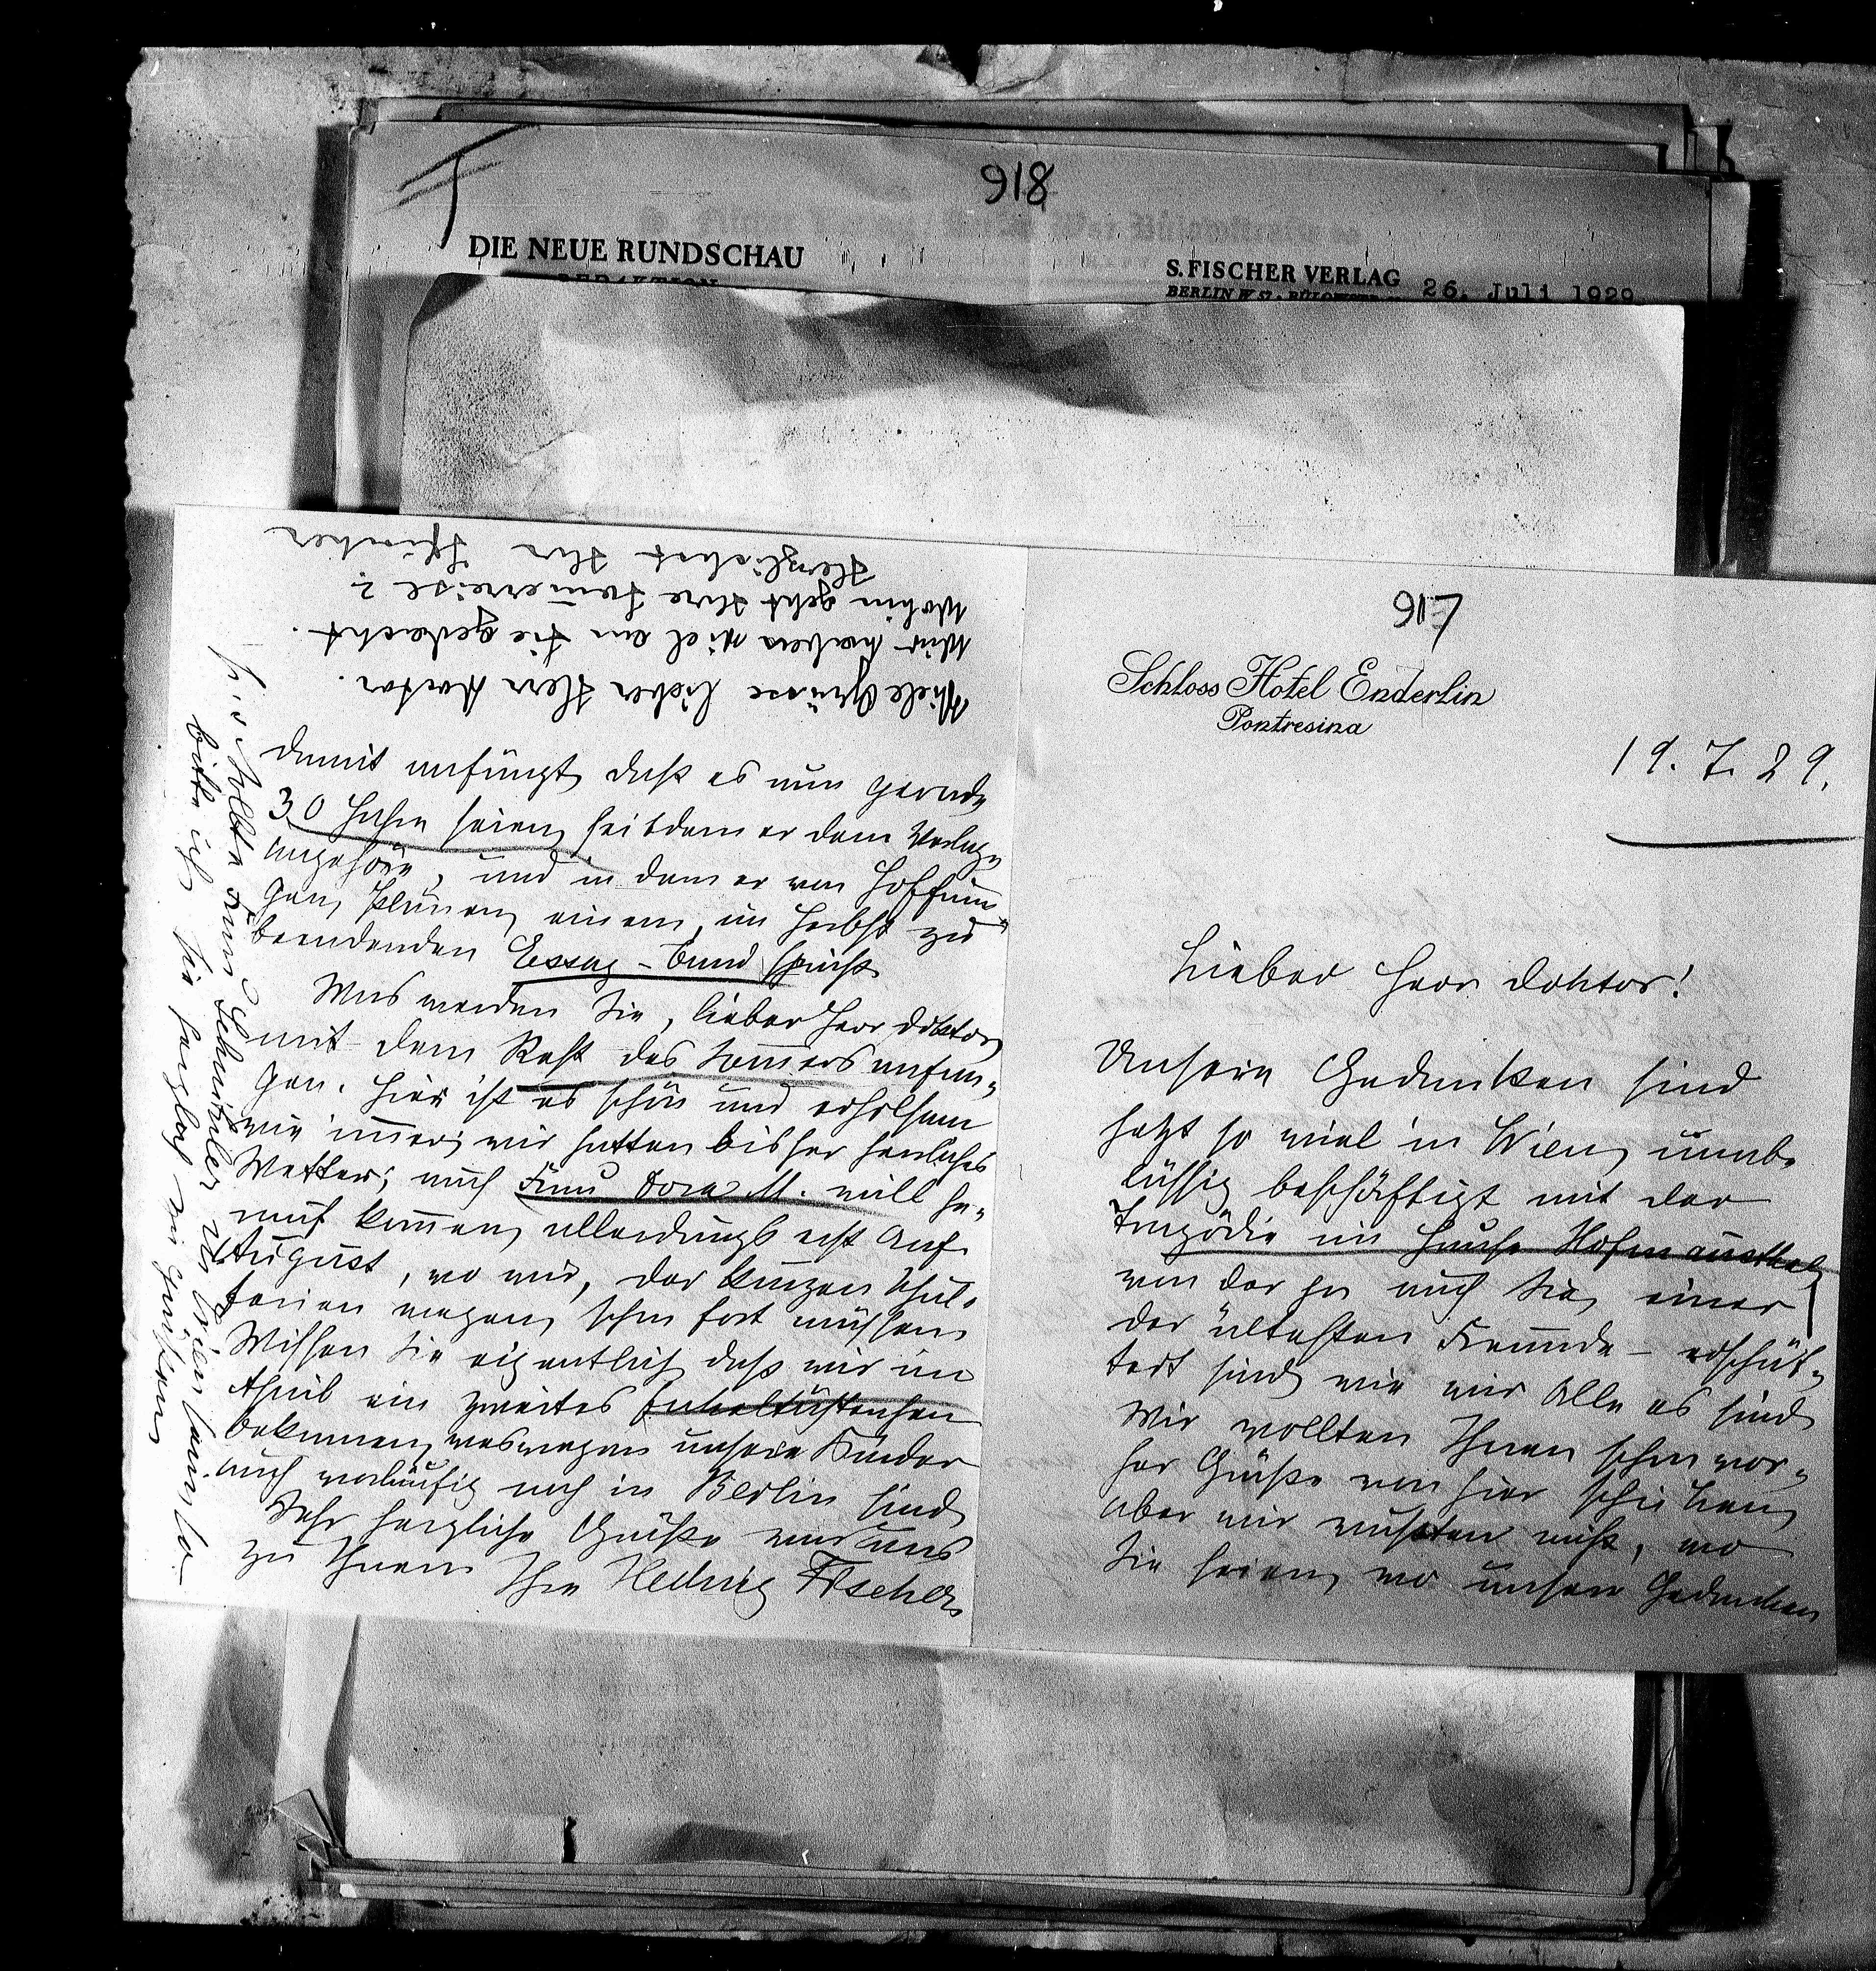 918
DIE NEUE RUNDSCHAU
REDAKTION
S. FISCHER VERLAG
BERLIN W 57 · BÜLOWSTR.
26. Juli 1929
917
Schloss Hotel Enderlin
Pontresina
19. 7. 29.
Lieber Herr Doktor!
Unsere Gedanken sind
jetzt so viel in Wien, unab-
lässig beschäftigt mit der
Tragödie im Hause Hofmannsthal
von der ja auch Sie, einer
der ältesten Freunde – erschüt-
tert sind, wie wir Alle es sind
Wir wollten Ihnen schon vor-
her Grüße von hier schicken,
aber wir wußten nicht, wo
Sie seien, wo unsere Gedanken
damit anfängt, daß es nun gerade
30 Jahre seien, seitdem er dem Verlage
angehöre, und in dem er von Hoffnun-
gen, Plänen, einem, im Herbst zu
beendenden Essay-Band spricht.
Was werden Sie, lieber Herr Doktor,
mit dem Rest des Sommers anfan-
gen. Hier ist es schön und erholsam
wie immer; wir hatten bisher herrliches
Wetter; auch Frau Dora M. will he-
rauf kommen, allerdings erst Anf.
August, wo wir, der kurzen Schul-
ferien wegen, schon fort müssen.
Wissen Sie eigentlich, daß wir im
April ein zweites Enkeltöchterchen
bekamen, weswegen unsere Kinder
auch vorläufig noch in Berlin sind.
Sehr herzliche Grüße von uns
zu Ihnen Ihre Hedwig Fischer
bitte ich Sie herzlich sie grüßen
Viele Grüsse lieber Herr Doktor.
Wir haben viel an Sie gedacht.
Wohin geht Ihre Sommerreise?
Herzlichst Ihr Fischer